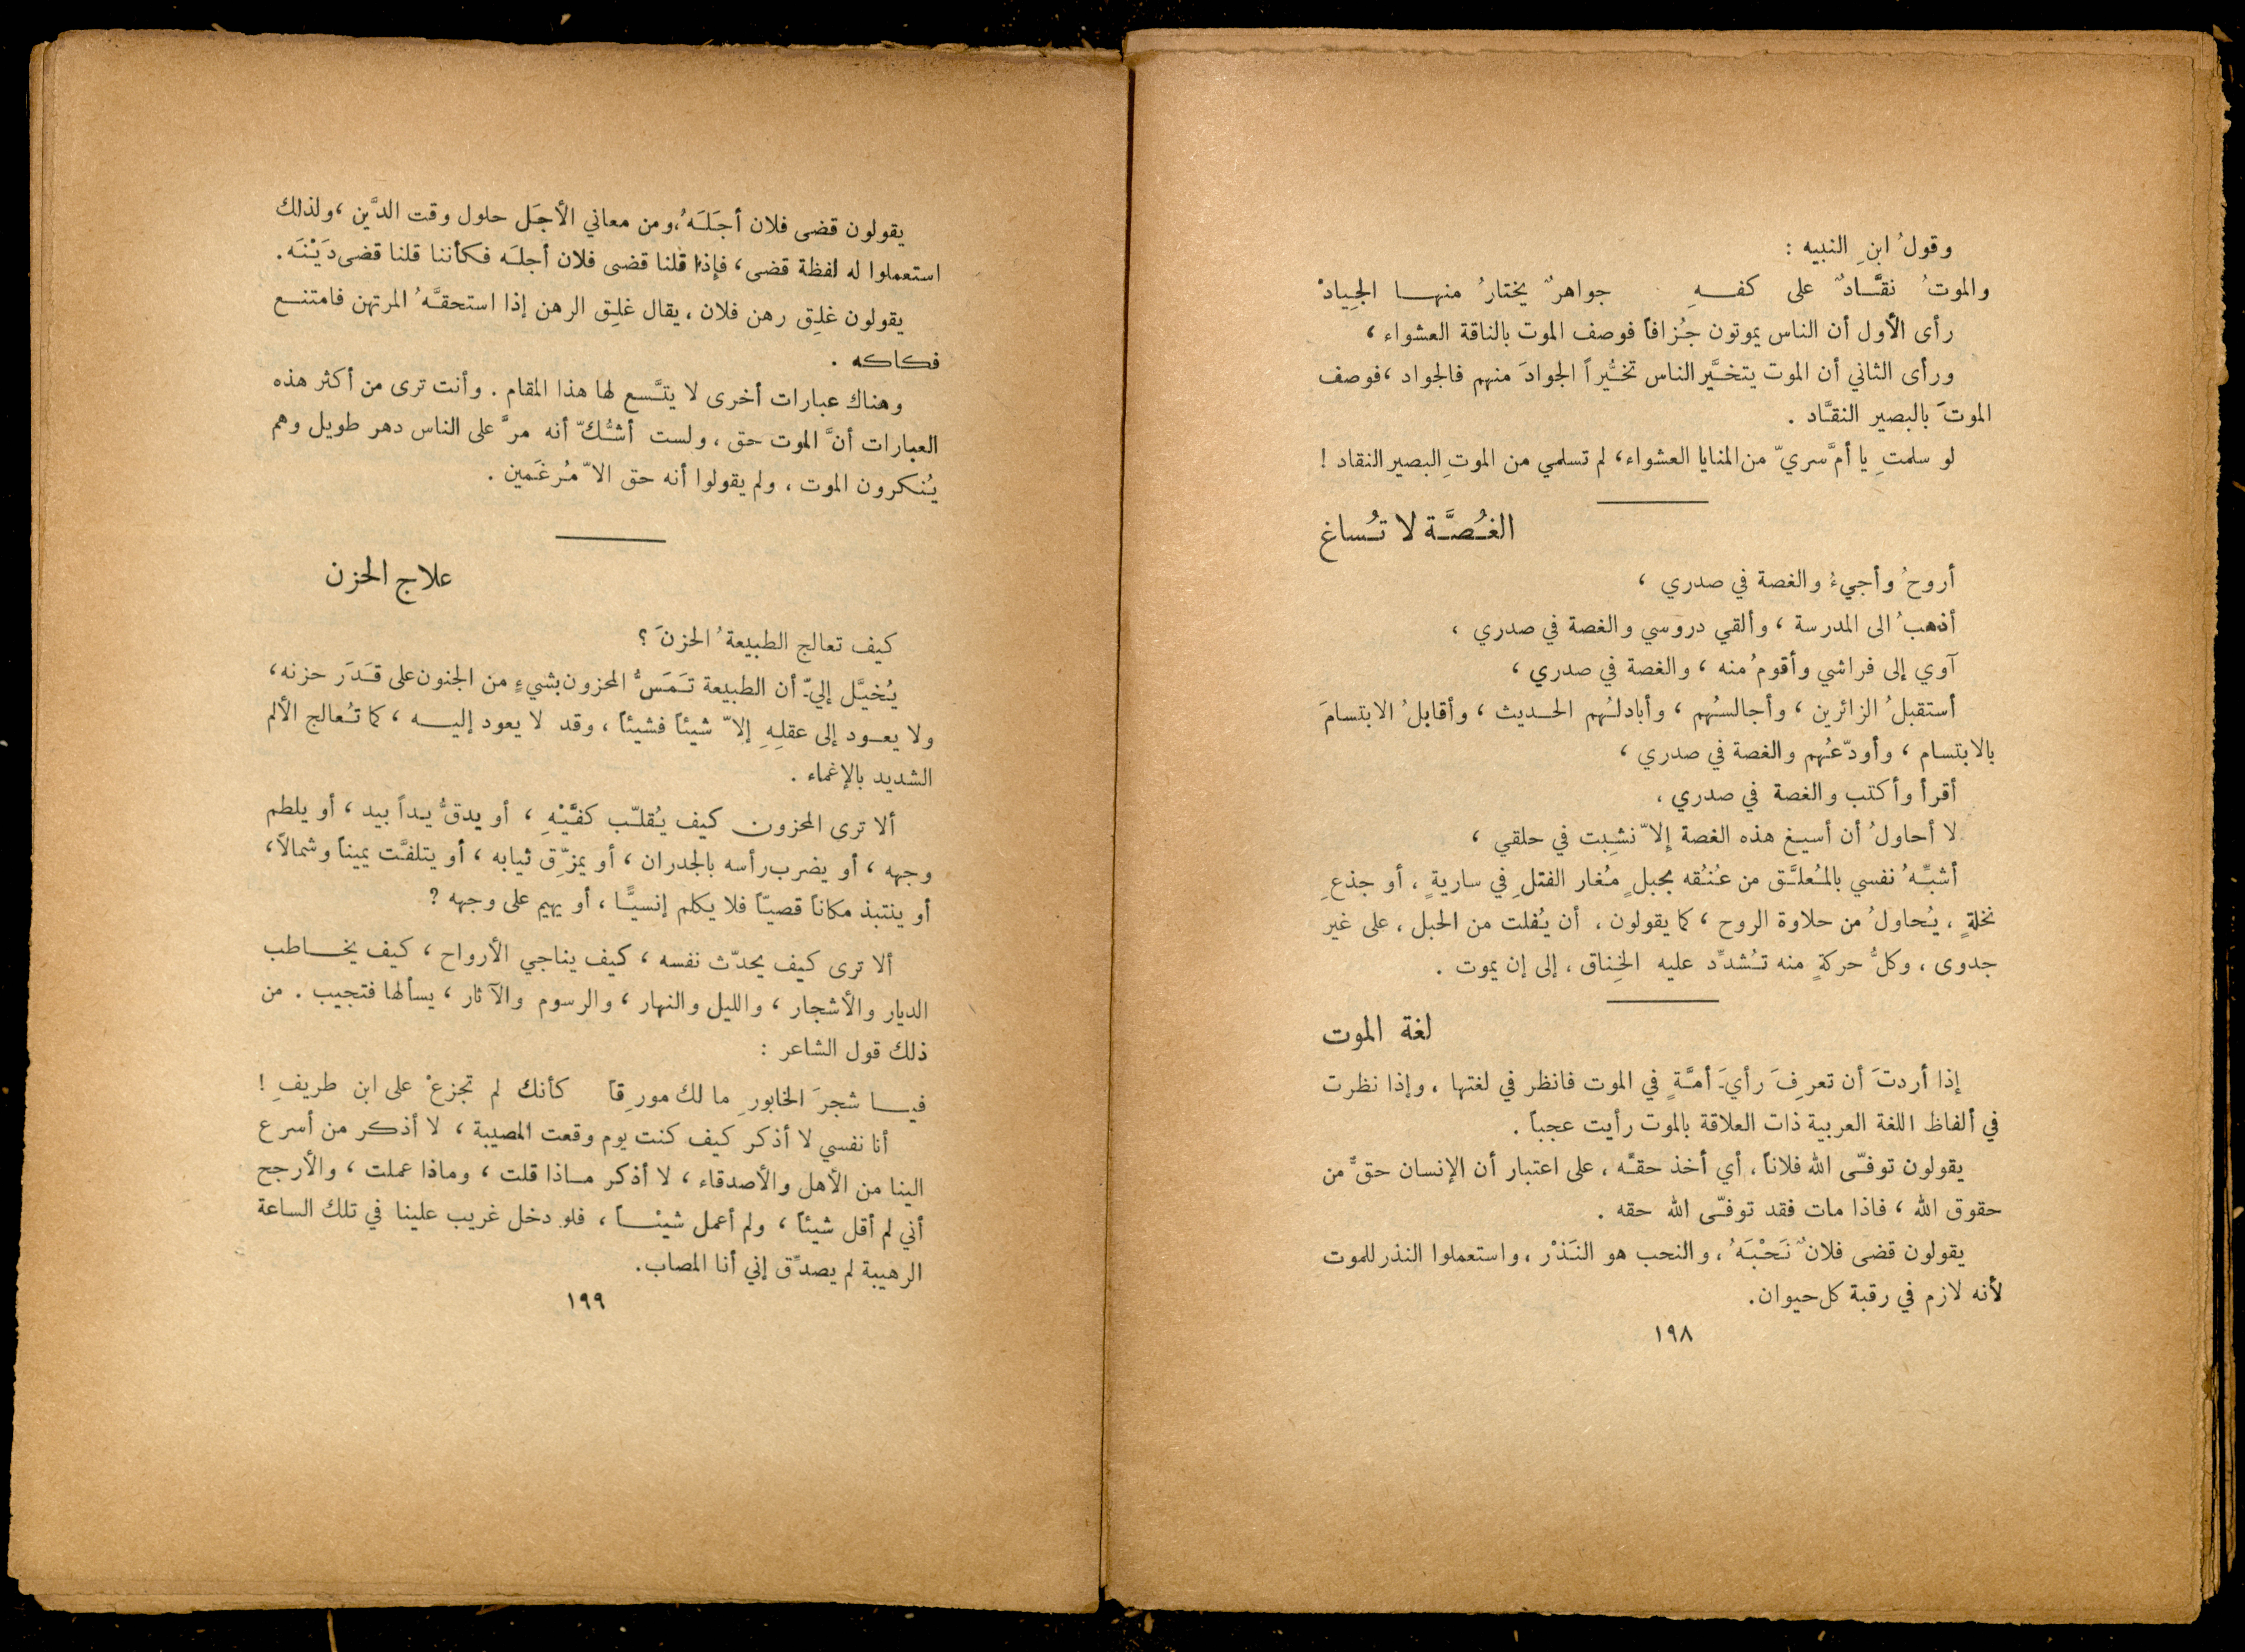 وقولُ ابنِ النبيه :
والموتُ نقَّادٌ على كفهِ جواهرٌ يختارُ منها الجِيادْ
رأى الأول أن الناس يموتون جُزافاً فوصف الموت بالناقة العشواء ،
ورأى الثاني أن الموت يتخيَّر الناس تخيُّراً الجوادَ منهم فالجواد ، فوصف
الموتَ بالبصير النقَّاد .
لو سلمتِ يا أمَّ سريّ من المنايا العشواء ، لم تسلمي من الموتِ البصير النقاد !
الغُصَّة لا تُساغ
أروحُ وأجيءُ والغصة في صدري ،
أذهبُ الى المدرسة ، وألقي دروسي والغصة في صدري ،
آوي إلى فراشي وأقومُ منه ، والغصة في صدري ،
أستقبلُ الزائرين ، وأجالسُهم ، وأبادلُهم الحديث ، وأقابلُ الابتسامَ
بالابتسام ، وأودّعُهم والغصة في صدري ،
أقرأ وأكتب والغصة في صدري ،
لا أحاولُ أن أسيغ هذه الغصة إلاّ نشِبت في حلقي ،
أشبِّهُ نفسي بالمُعلَّق من عُنُقه بحبلٍ مُغار الفتلِ في ساريةٍ ، أو جذعِ
نخلةٍ ، يُحاولُ من حلاوة الروح ، كما يقولون ، أن يُفلت من الحبل ، على غير
جدوى ، وكلُّ حركةٍ منه تُشدِّد عليه الخِناق ، إلى إن يموت .
لغة الموت
إذا أردتَ أن تعرِفَ رأيَ أمَّةٍ في الموت فانظر في لغتها ، وإذا نظرت
في ألفاظ اللغة العربية ذات العلاقة بالموت رأيت عجباً .
يقولون توفّى الله فلاناً ، أي أخذ حقَّه ، على اعتبار أن الإنسان حقٌّ من
حقوق الله ، فاذا مات فقد توفّى الله حقه .
يقولون قضى فلانٌ نَحْبَهُ ، والنحب هو النَذْر ، واستعملوا النذر للموت
لأنه لازم في رقبة كل حيوان .
١٩٨
يقولون قضى فلان أجَلَهُ ، ومن معاني الأجَل حلول وقت الدَّين ، ولذلك
استعملوا له لفظة قضى ، فإذا قلنا قضى فلان أجلَه فكأننا قلنا قضى دَيْنَه .
يقولون غلِق رهن فلان ، يقال غلِق الرهن إذا استحقَّهُ المرتهن فامتنع
فكاكه .
وهناك عبارات أخرى لا يتَّسع لها هذا المقام . وأنت ترى من أكثر هذه
العبارات أنَّ الموت حق ، ولست أشُكّ أنه مرَّ على الناس دهر طويل وهم
يُنكرون الموت ، ولم يقولوا أنه حق الاّ مُرغَمين .
علاج الحزن
كيف تعالج الطبيعةُ الحزنَ ؟
يُخيَّل إليّ أن الطبيعة تَمَسُّ المحزون بشيءٍ من الجنون على قَدَر حزنه ،
ولا يعود إلى عقلِهِ إلاّ شيئاً فشيئاً ، وقد لا يعود إليه ، كما تُعالج الألم
الشديد بالإغماء .
ألا ترى المحزون كيف يُقلّب كفَّيْهِ ، أو يدقُّ يداً بيد ، أو يلطم
وجهه ، أو يضرب رأسه بالجدران ، أو يمزّق ثيابه ، أو يتلفَّت يميناً وشمالاً ،
أو ينتبذ مكاناً قصيّاً فلا يكلم إنسيًّا ، أو يهيم على وجهه ?
ألا ترى كيف يحدّث نفسه ، كيف يناجي الأرواح ، كيف يخاطب
الديار والأشجار ، والليل والنهار ، والرسوم والآثار ، يسألها فتجيب . من
ذلك قول الشاعر :
فيا شجرَ الخابورِ ما لك مورِقاً كأنك لم تجزعْ على ابن طريفِ !
أنا نفسي لا أذكر كيف كنت يوم وقعت المصيبة ، لا أذكر من أسرع
الينا من الأهل والأصدقاء ، لا أذكر ماذا قلت ، وماذا عملت ، والأرجح
أني لم أقل شيئاً ، ولم أعمل شيئاً ، فلو دخل غريب علينا في تلك الساعة
الرهيبة لم يصدِّق إني أنا المصاب .
١٩٩